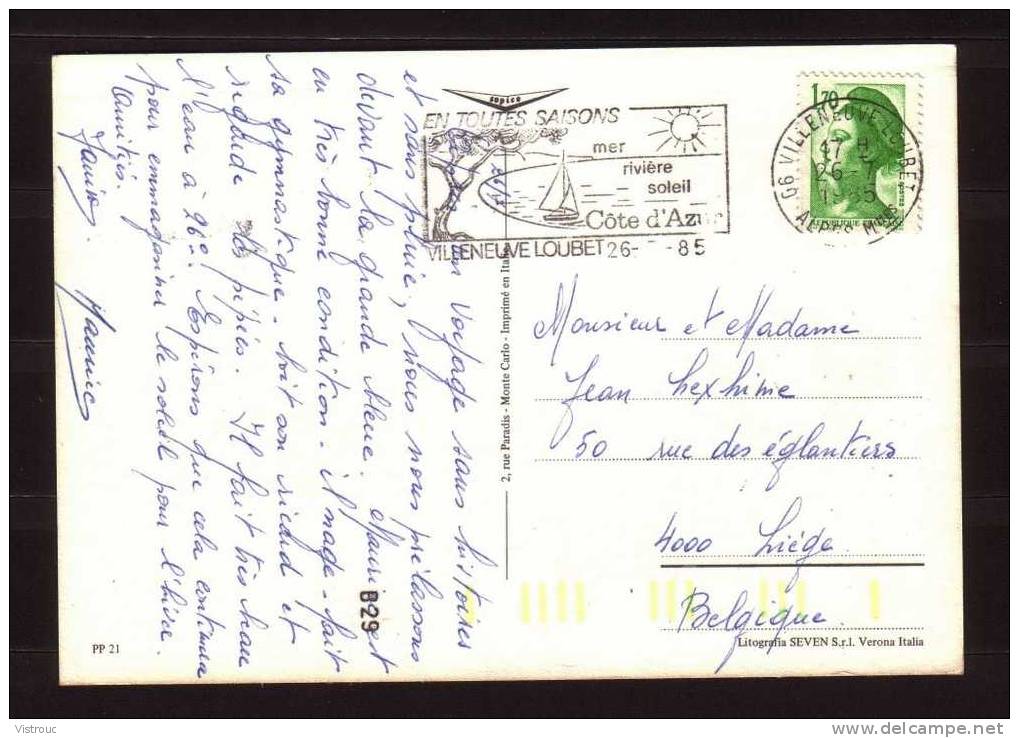 26/5
Un voyage sans histoires
et sans pluie, nous nous prélassons
devant la grande bleue. Maurice est
en très bonne condition - il nage - fait
sa gymnastique - boit son ricard et
regarde les pépés. Il fait très beau
l'eau à 26°. Espérons que cela continue
pour emmagasiner le soleil pour l'hiver.
Amitiés.
sopico
EN TOUTES SAISONS
mer
rivière
soleil
Côte d'Azur
VILLENEUVE LOUBET 26- -85
1,70
06 VILLENEUVE-LOUBET
17 H
26-
ALPES MMES
REPUBLIQUE FRANCAISE
2, rue Paradis - Monte Carlo - Imprimé en Ital
Monsieur et Madame
Jean Lexhime
50 rue des églantiers
4000 Liège
Belgique
B29
PP 21
Litografia SEVEN S.r.l. Verona Italia
© Vistrouc
www.delcampe.net